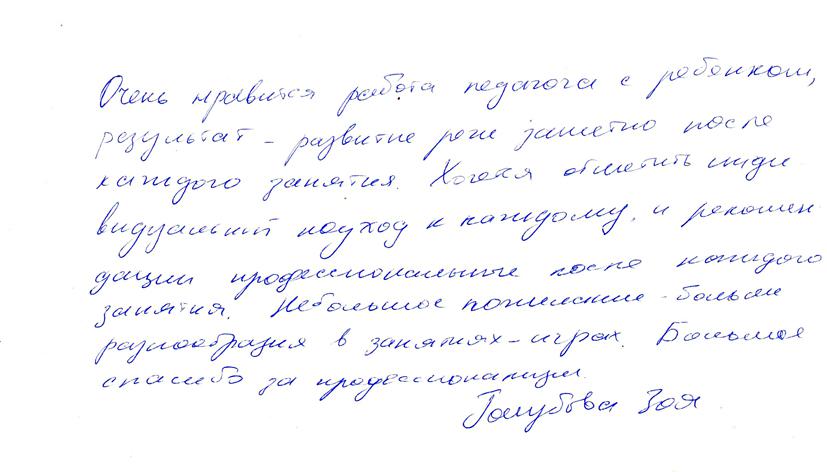 Очень нравится работа педагога с ребенком,
результат - развитие речи заметно после
каждого занятия. Хотелось отметить инди
видуальный подход к каждому, и рекомен
дации профессиональные после каждого
занятия. Небольшое пожелание - больше
разнообразия в занятиях-играх. Большое
спасибо за профессионализм.
Голубова Зоя